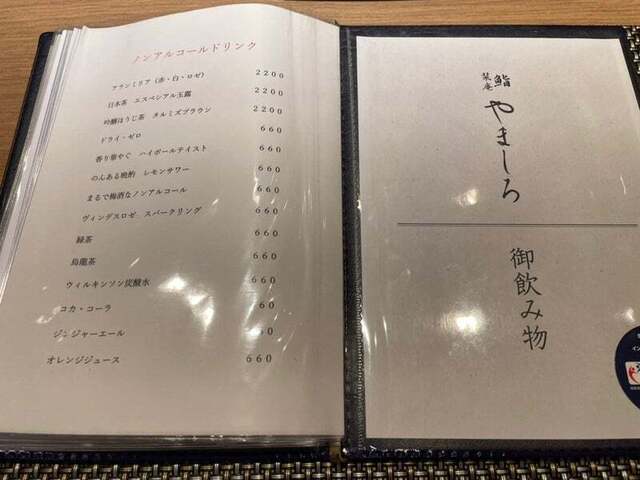 ノンアルコールドリンク
アランミリア（赤・白・ロゼ） 2200
日本茶 エスペシアル玉露 2200
吟醸ほうじ茶 タルミズブラウン 2200
ドライ・ゼロ 660
香り華やぐ ハイボールテイスト 660
のんある晩酌 レモンサワー 660
まるで梅酒なノンアルコール 660
ヴィングスロゼ スパークリング 660
緑茶 660
烏龍茶 660
ウィルキンソン炭酸水 660
コカ・コーラ 60
ジンジャーエール 60
オレンジジュース 660
鮨
菜庵
やましろ
御飲み物